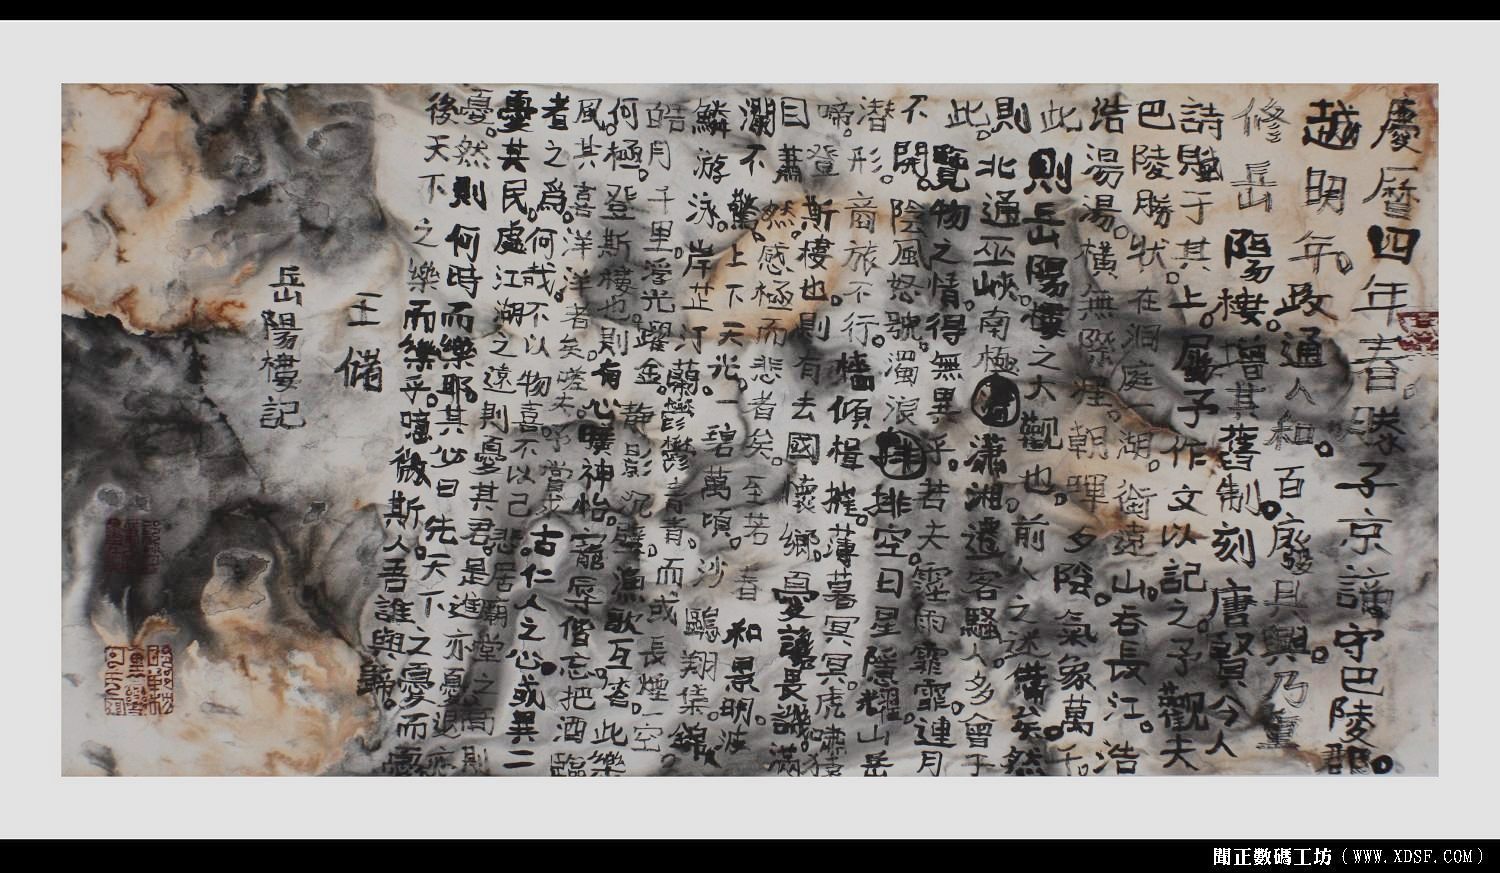 慶曆四年春滕子京謫守巴陵郡。
越明年。政通人和。百廢具興。乃重
修岳陽樓。增其舊制。刻唐賢今人
詩賦于其上。屬予作文以記之予觀夫
巴陵勝狀。在洞庭一湖。銜遠山。吞長江。浩
浩湯湯。橫無際涯。朝暉夕陰。氣象萬千。
此則岳陽樓之大觀也。前人之述備矣。然
則北通巫峽。南極瀟湘遷客騷人多會于
此。覽物之情。得無異乎。若夫霪雨霏霏連月
不開。陰風怒號。濁浪排空日星隱耀。山岳
潛形。商旅不行。檣傾楫摧。薄暮冥冥。虎嘯猿
啼。登斯樓也。則有去國懷鄉。憂讒畏譏。滿
目蕭然感極而悲者矣。至若春和景明。波
瀾不驚。上下天光。一碧萬頃。沙鷗翔集。錦
鱗游泳。岸芷汀蘭鬱鬱青青。而或長煙空
皓月千里。浮光躍金。靜影沉璧。漁歌互答。此樂
何極。登斯樓也則有心曠神怡。寵辱偕忘把酒臨
風其喜洋洋者矣。嗟夫。予嘗求古仁人之心。或異二
者之為。何哉。不以物喜不以己悲居廟堂之高則
憂其民。處江湖之遠則憂其君。是進亦憂退亦
憂。然則何時而樂耶。其必曰先天下之憂而憂
後天下之樂而樂乎。噫微斯人吾誰與歸。
王儲
岳陽樓記
聞正數碼工坊（WWW.XDSF.COM）